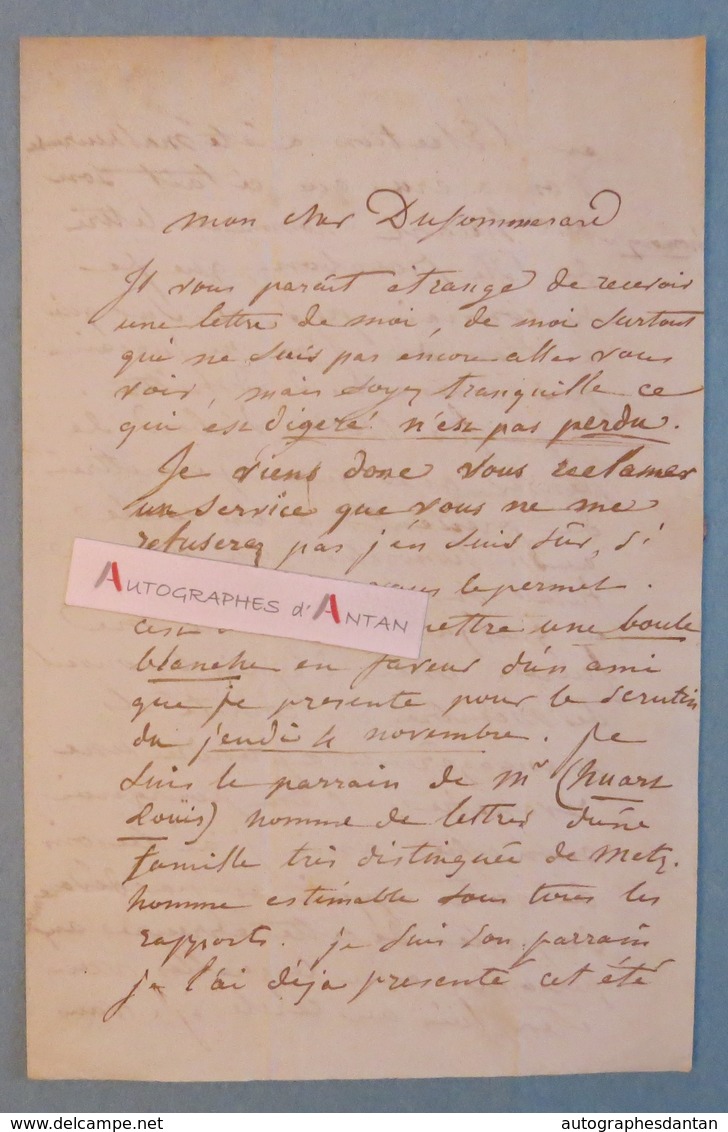 mon cher DuSommerard
Il vous parait étrange de recevoir
une lettre de moi, de moi surtout
qui ne suis pas encore aller vous
voir, mais soyez tranquille ce
qui est digeré! n'est pas perdu.
Je viens donc vous reclamer
un service que vous ne me
refuserez pas j'en suis sûr, si
vous le permet.
AUTOGRAPHES d'ANTAN
c'est mettre une boule
blanche en faveur d'un ami
que je presente pour le scrutin
du jeudi 4 novembre. Je
suis le parrain de Mr (huart
Louïs) homme de lettres d'une
famille très distinguée de Metz.
homme estimable sous tous les
rapports. je suis son parrain
je l'ai déja presenté cet été
www.delcampe.net
autographesdantan